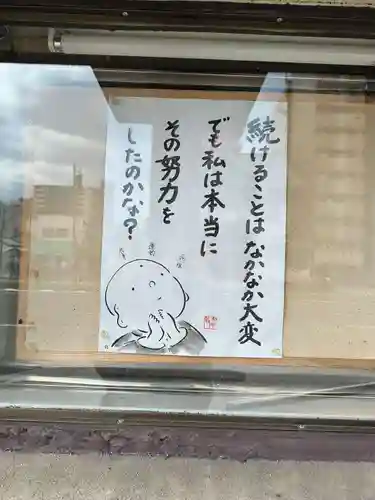 続けることは なかなか大変
でも私は本当に
その努力を
したのかな?